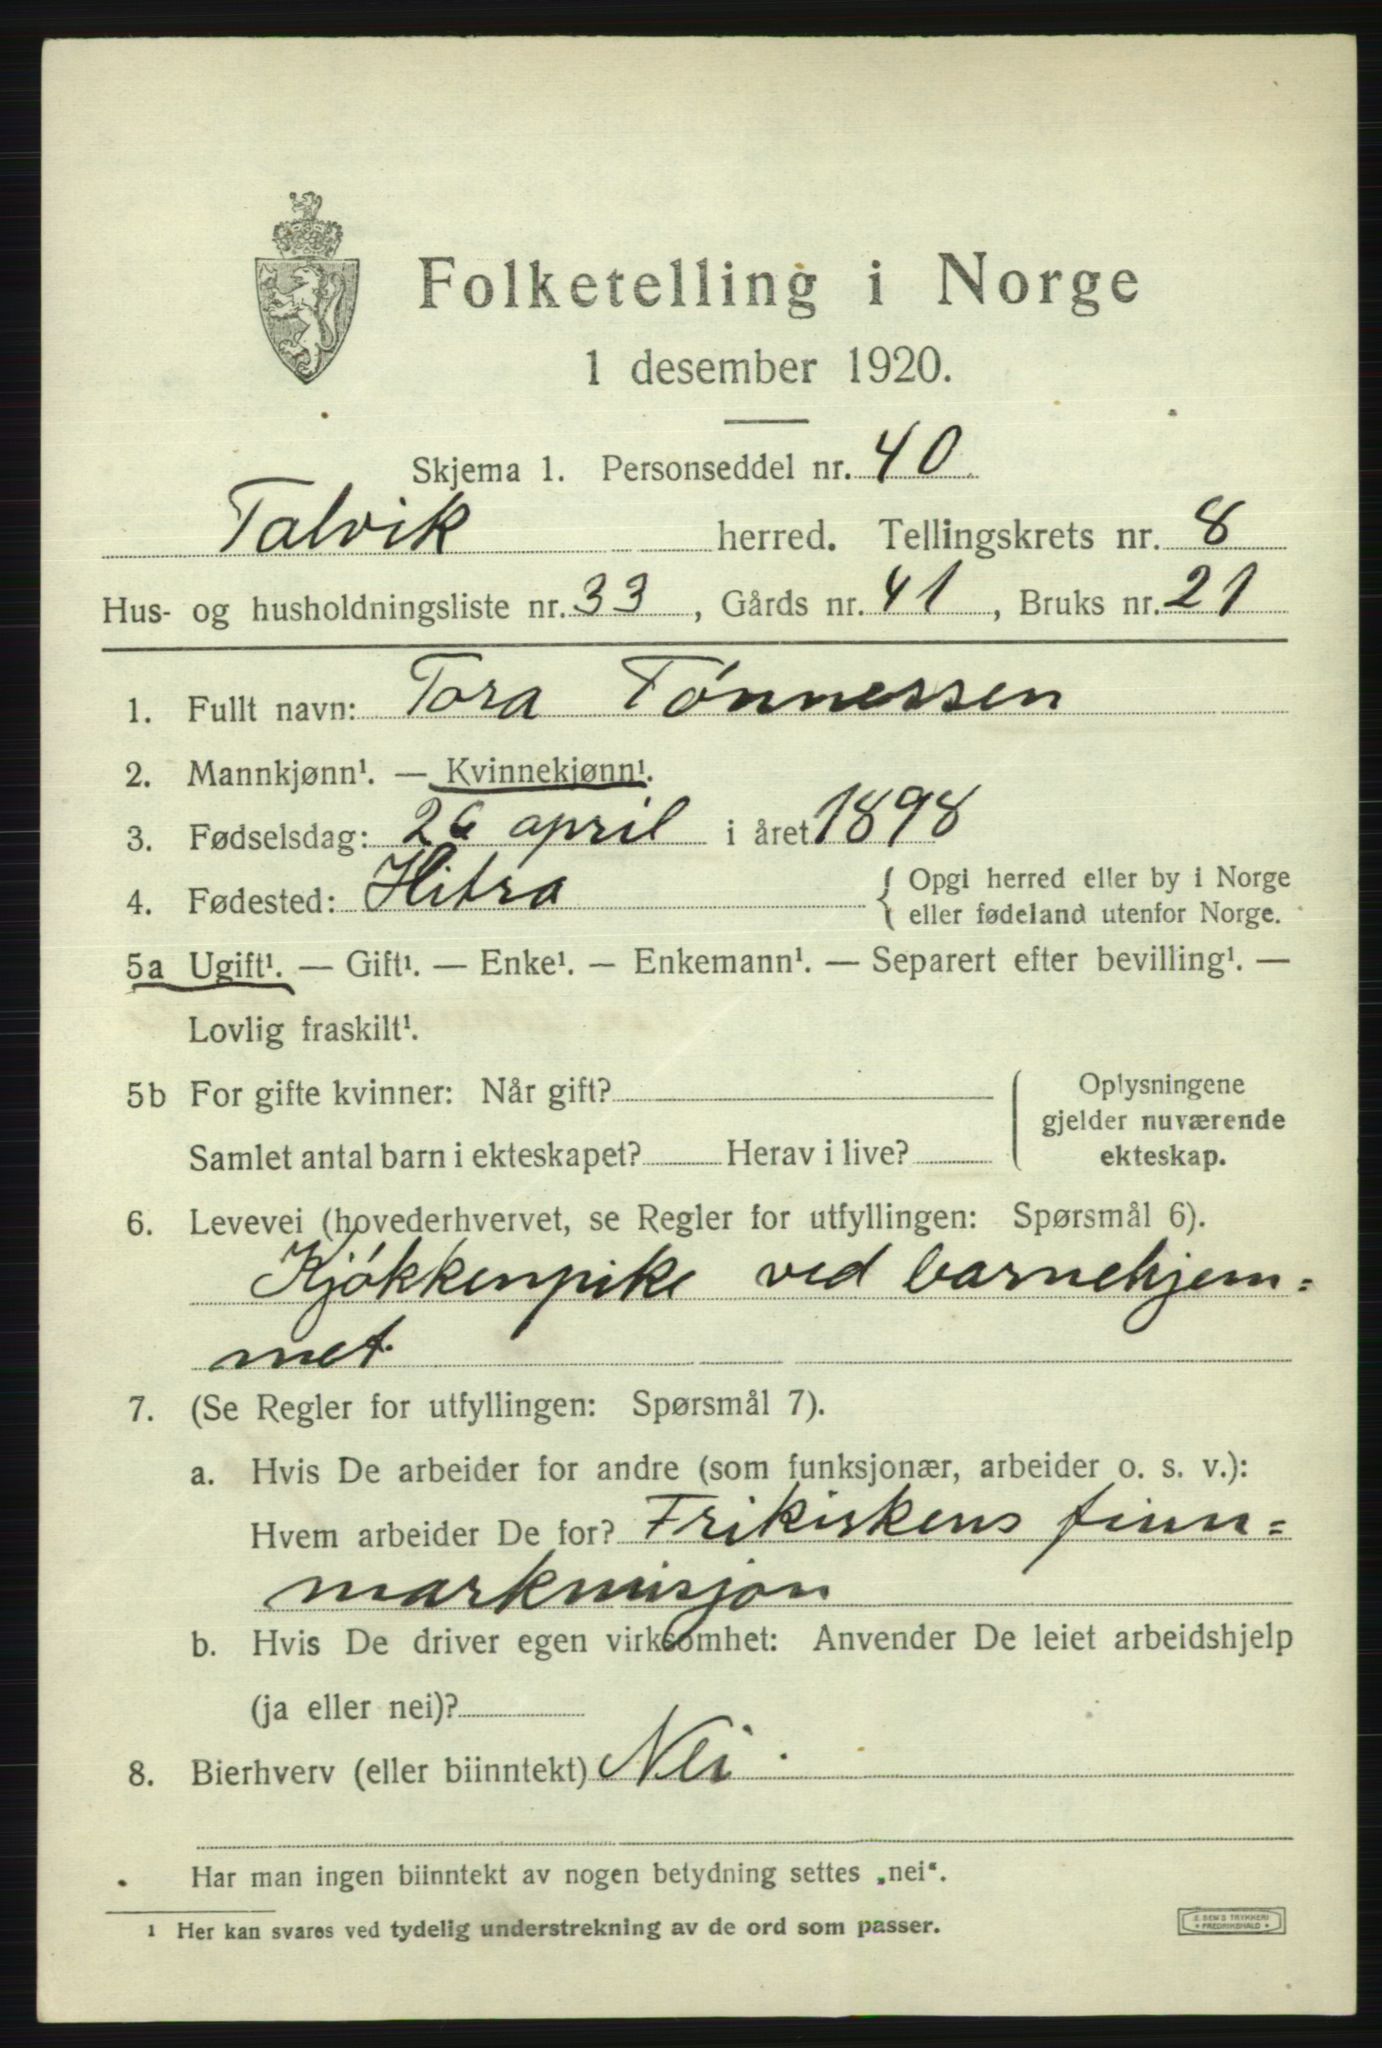 Folketelling i Norge
1 desember 1920.
Skjema 1. Personseddel nr. 40
Talvik herred. Tellingskrets nr. 8
Hus- og husholdningsliste nr. 33, Gårds nr. 41, Bruks nr. 21
1. Fullt navn: Tora Tønnessen
2. Mannkjønn¹. — Kvinnekjønn¹.
3. Fødselsdag: 26 april i året 1898
4. Fødested: Hitra { Opgi herred eller by i Norge
eller fødeland utenfor Norge.
5a Ugift¹. — Gift¹. — Enke¹. — Enkemann¹. — Separert efter bevilling¹. —
Lovlig fraskilt¹.
5b For gifte kvinner: Når gift?
Samlet antal barn i ekteskapet? Herav i live?
Oplysningene
gjelder nuværende
ekteskap.
6. Levevei (hovederhvervet, se Regler for utfyllingen: Spørsmål 6).
Kjøkkenpike ved barnehjem=
met.
7. (Se Regler for utfyllingen: Spørsmål 7).
a. Hvis De arbeider for andre (som funksjonær, arbeider o. s. v.):
Hvem arbeider De for? Frikirkens finn=
markmisjon
b. Hvis De driver egen virksomhet: Anvender De leiet arbeidshjelp
(ja eller nei)?
8. Bierhverv (eller biinntekt) Nei.
Har man ingen biinntekt av nogen betydning settes „nei“.
¹ Her kan svares ved tydelig understrekning av de ord som passer.
E. SEM'S TRYKKERI
FREDRIKSHALD